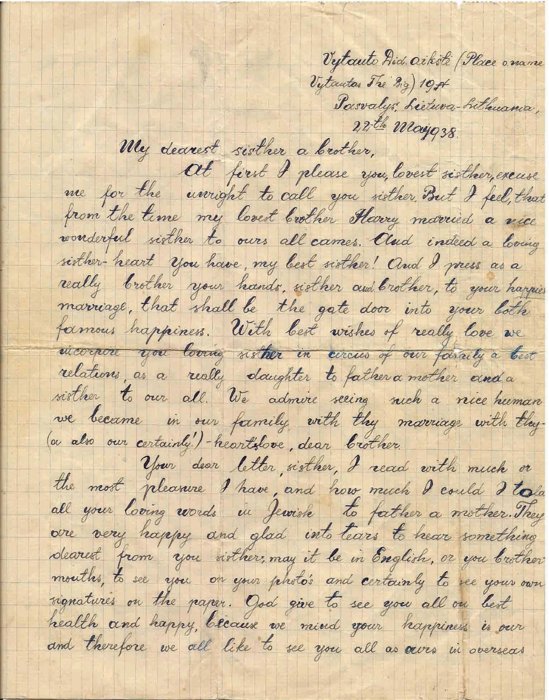 Vytauto Did. aikštė (Place o. name
Vytautas The Big) 19
Pasvalys, Lietuva-Lithuania,
22-th May 938.
My dearest sisther a brother,
At first I please you, lovest sisther, excuse
me for the unright to call you sisther. But I feel, that
from the time my lovest brother Harry married a nice
wonderful sisther to ours all cames. And indeed a loving
sisther-heart you have, my best sisther! And I press as a
really brother your hands, sisther and brother, to your happies
marriage, that shall be the gate door into your both
famous happiness. With best wishes of really love we
incorpore you loving sisther in circus of our family a best
relations, as a really daughter to father a mother and a
sisther to our all. We admire seeing such a nice human
we became in our family with thy marriage with thy-
(a also our certainly!)-heartslove, dear brother.
Your dear letter, sisther, I read with much or
the most pleasure I have, and how much I could I told
all your loving words in Jewish to father a mother. They
are very happy and glad into tears to hear something
dearest from you sisther, may it be in English, or you brother-
mouths, to see you on your photo's and certainly to see your own
signatures on the paper. God give to see you all on best
health and happy, because we mind your happiness is our
and therefore we all like to see you all as ours in overseas